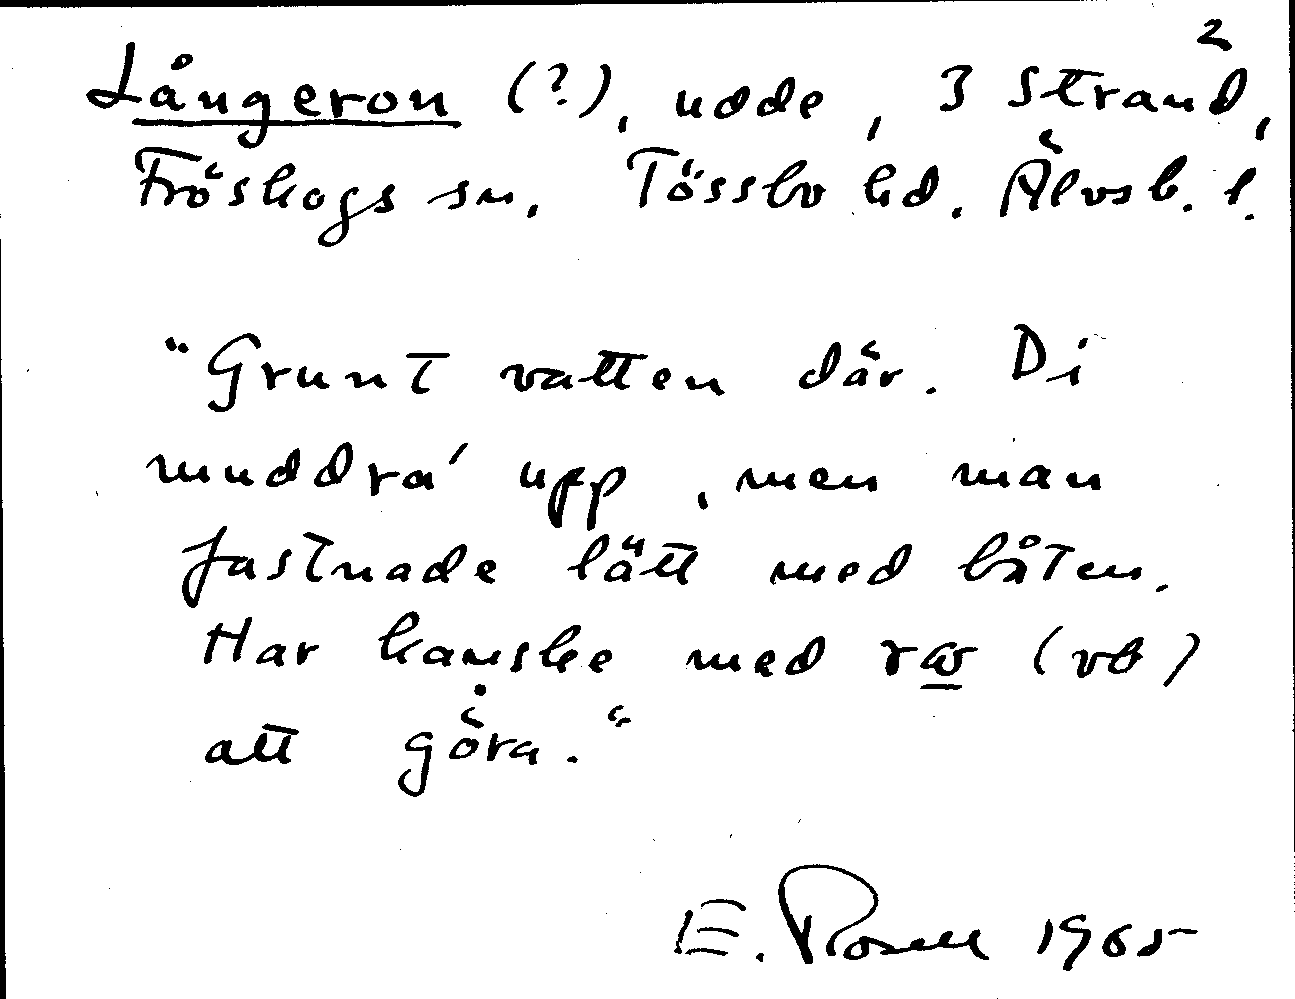 2
Långeron (?), udde, 3 Strand,
Fröskogs sn. Tössbo hd. Älvsb. l.
"Grunt vatten där. Di
muddra' upp, men man
fastnade lätt med båten.
Har kanske med ro (vb)
att göra."
E. Rosell 1965